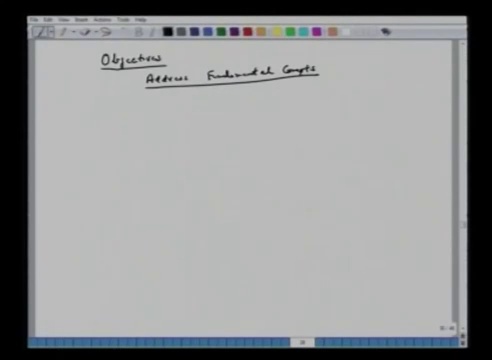 File Edit View Tools Help
Objectives
Address Fundamental Concepts